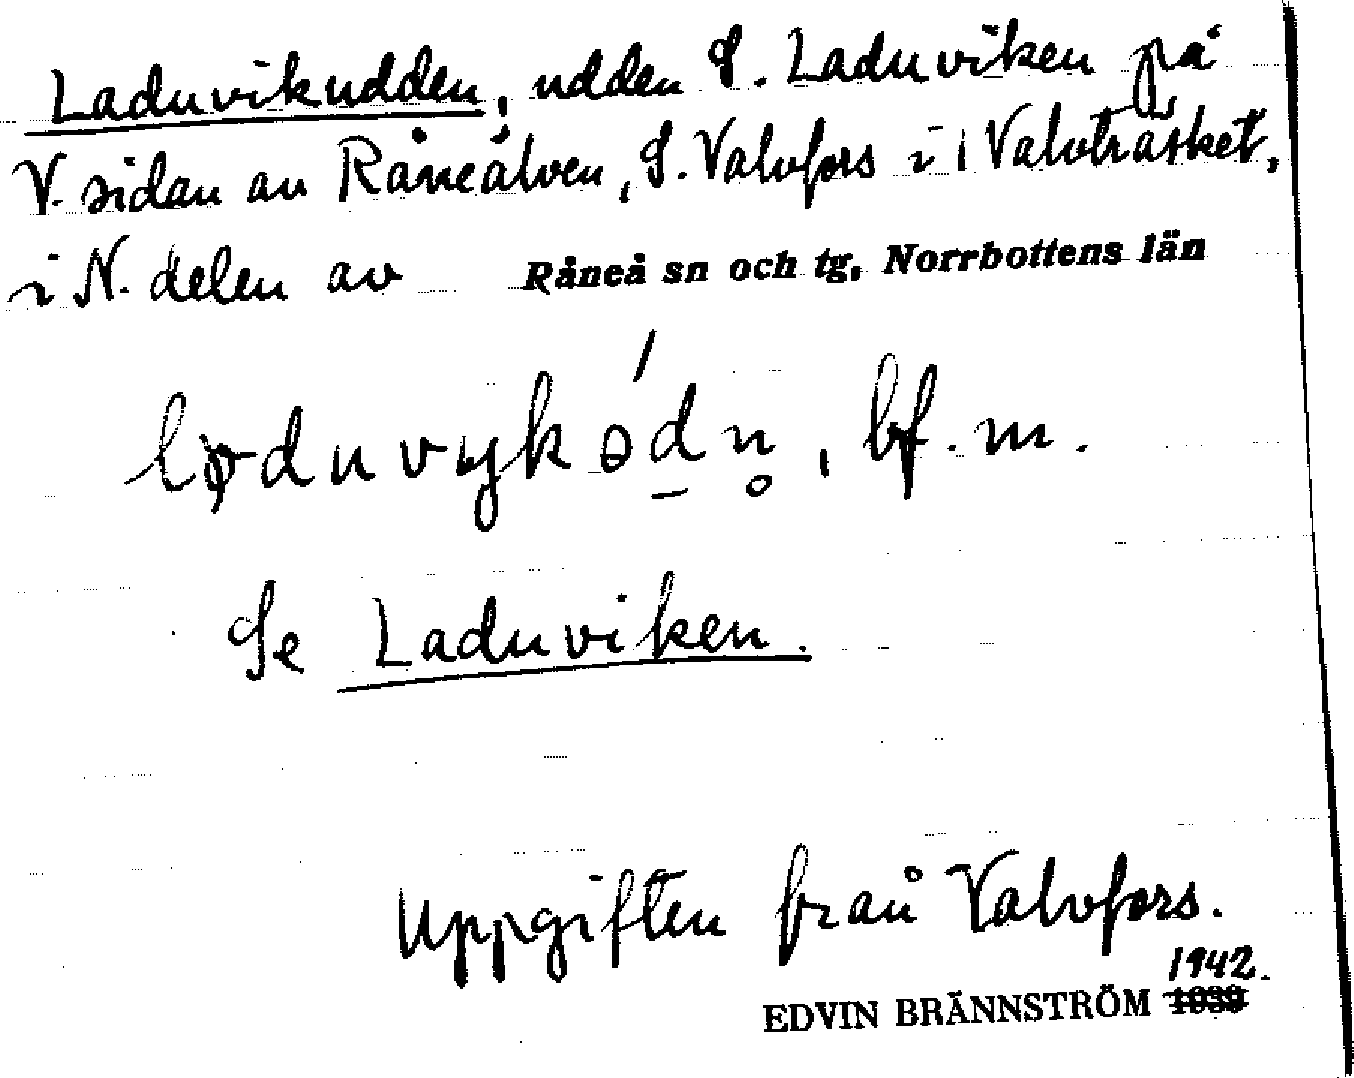 Laduvikudden, udden S. Laduviken på
V. sidan av Råneälven, S. Valvfors i Valvträsket,
i N. delen av Råneå sn och tg, Norrbottens län
bf. m.
Se Laduviken.
Uppgiften från Valvfors.
1942.
EDVIN BRÄNNSTRÖM 1939